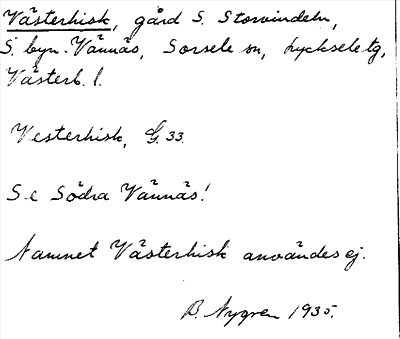 Västerhisk, gård S. Storvindeln,
S. byn. Vännäs, Sorsele sn, Lycksele tg,
Västerb. l.
Vesterhisk, G. 33.
Se Södra Vännäs!
Namnet Västerhisk användes ej.
B. Nygren 1935.